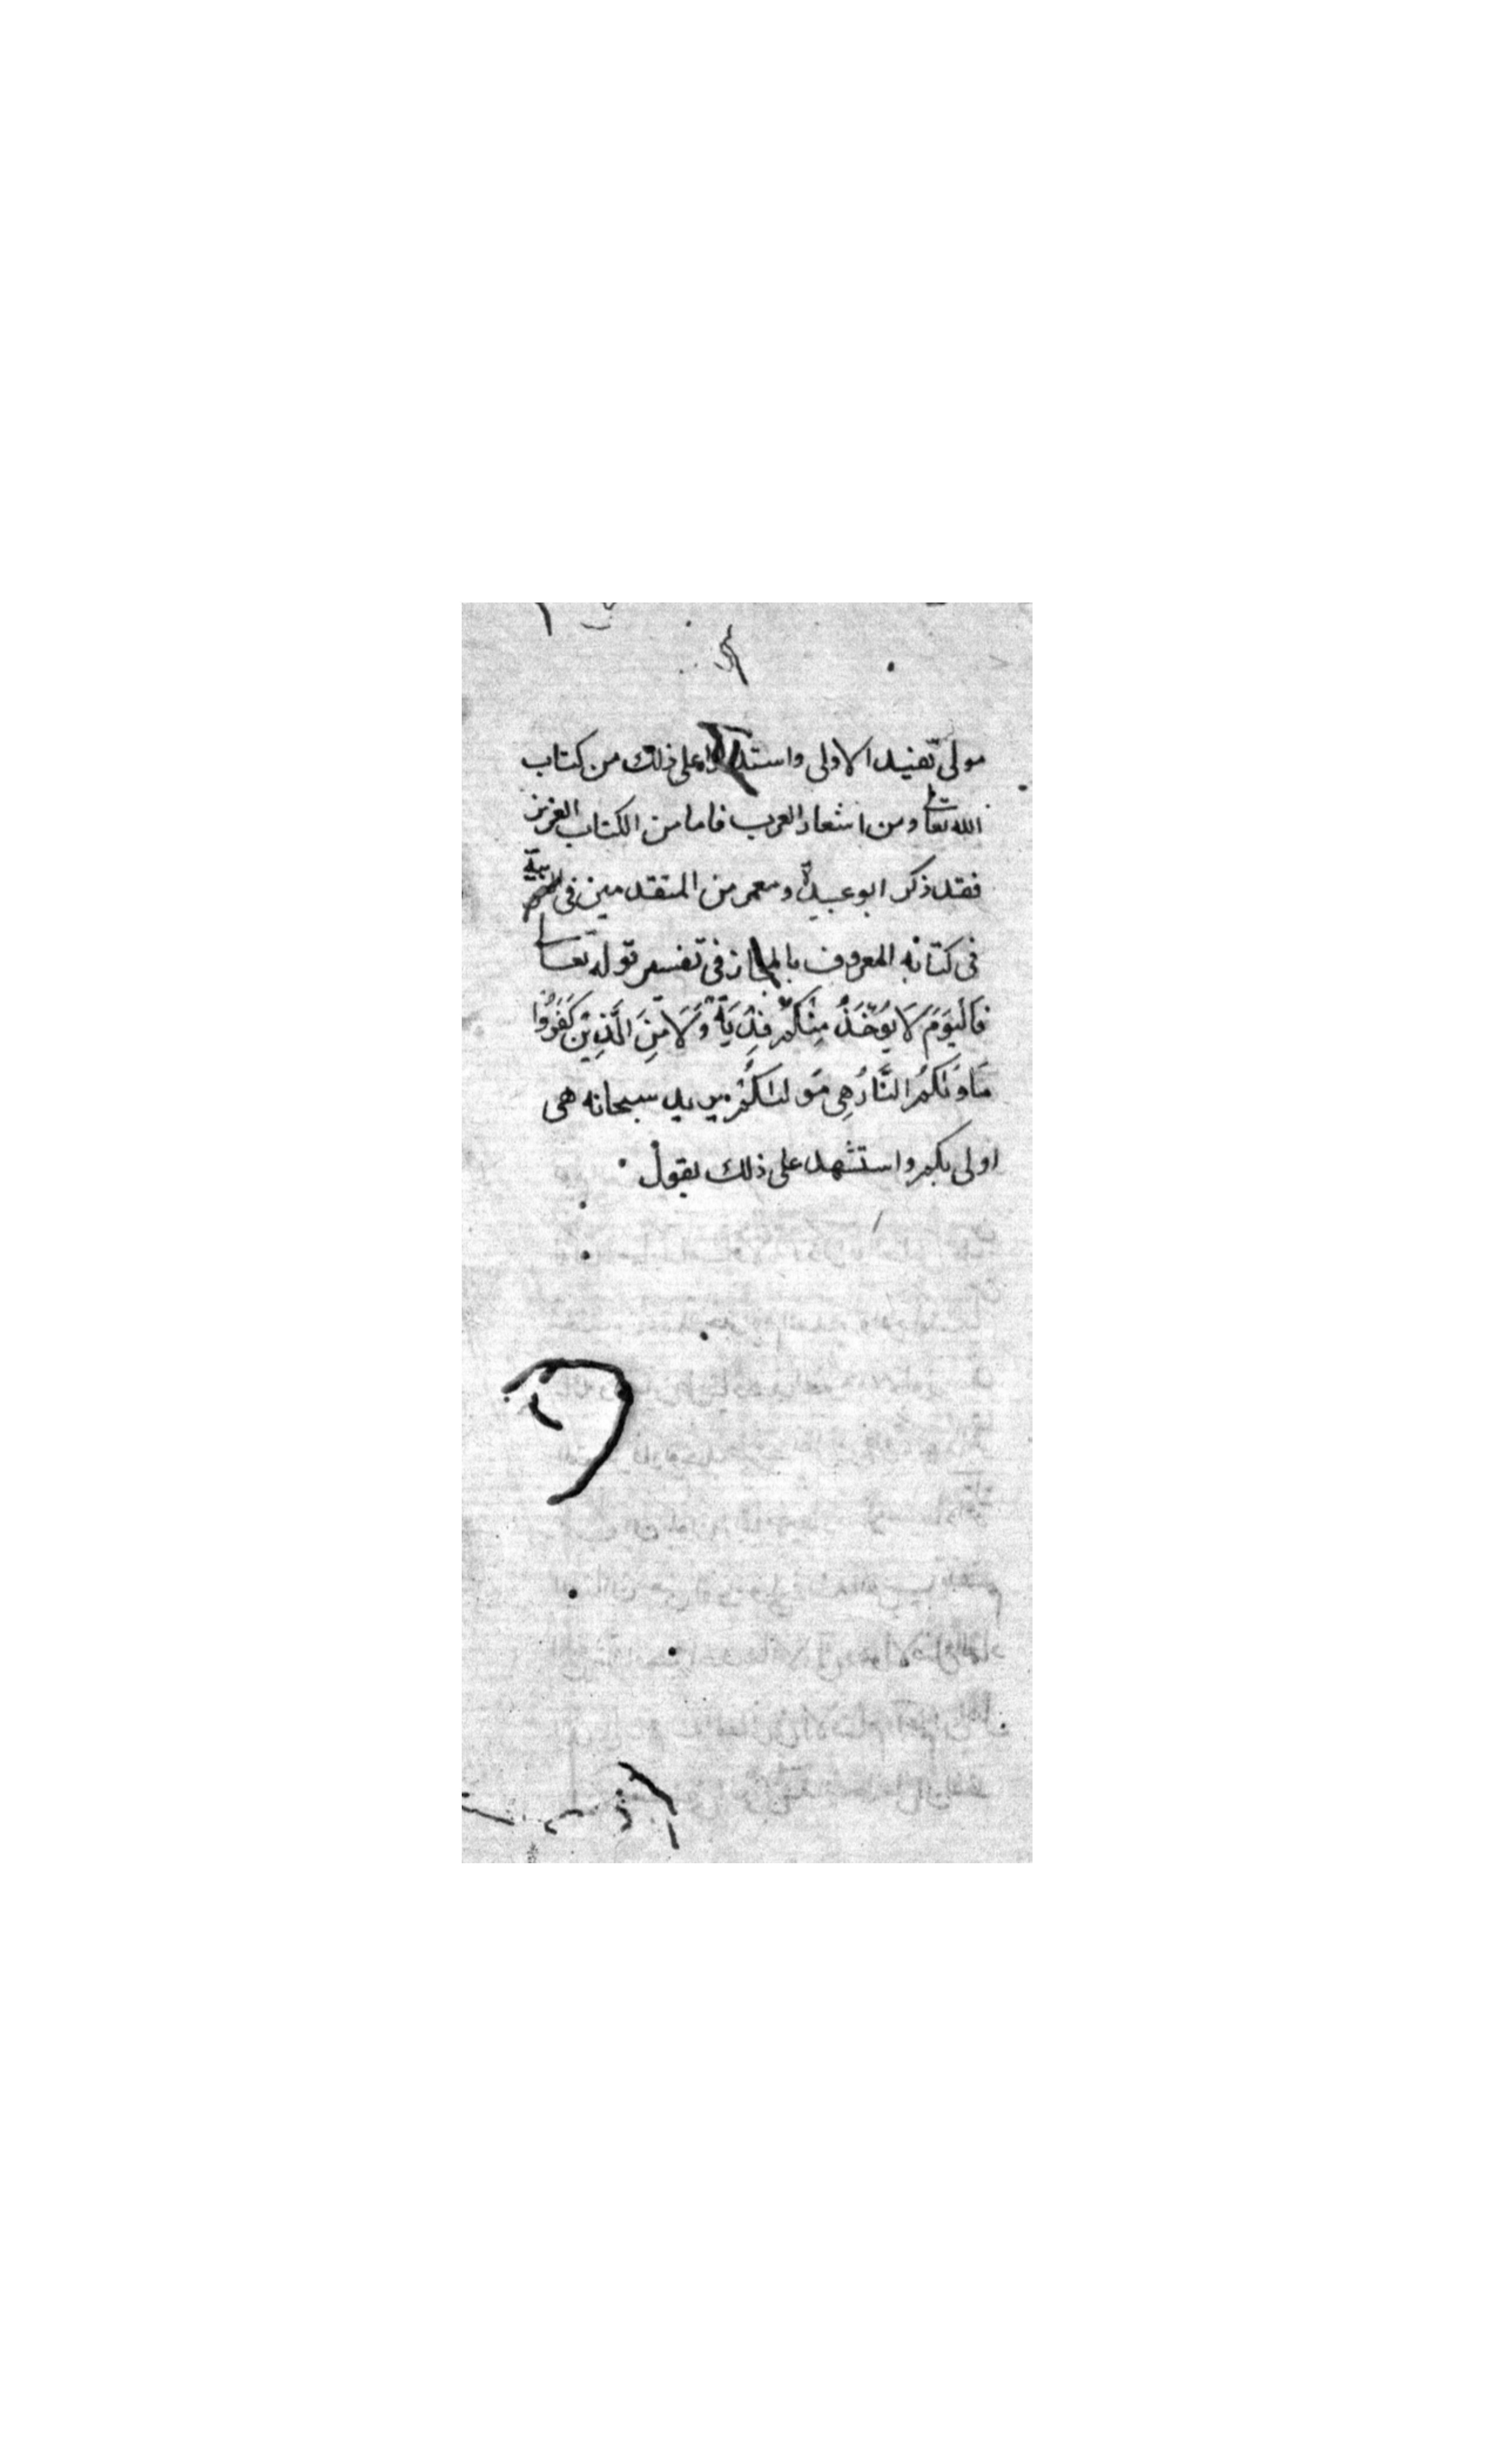 مولى تفيد الاولى واستدلوا على ذلك من كتاب
الله تعالى ومن اشعار العرب فاما من الكتاب العزيز
فقد ذكر ابو عبيدة ومعمر من المتقدمين فى العربية
فى كتابه المعروف بالمجاز فى تفسير قوله تعالى
فَالْيَوْمَ لَا يُؤْخَذُ مِنْكُمْ فِدْيَةٌ وَلَا مِنَ الَّذِيْنَ كَفَرُوْا
مَاْوٰىكُمُ النَّارُ هِى مَوْلٰىكُمْ يريد سبحانه هى
اولى بكم واستشهد على ذلك بقول